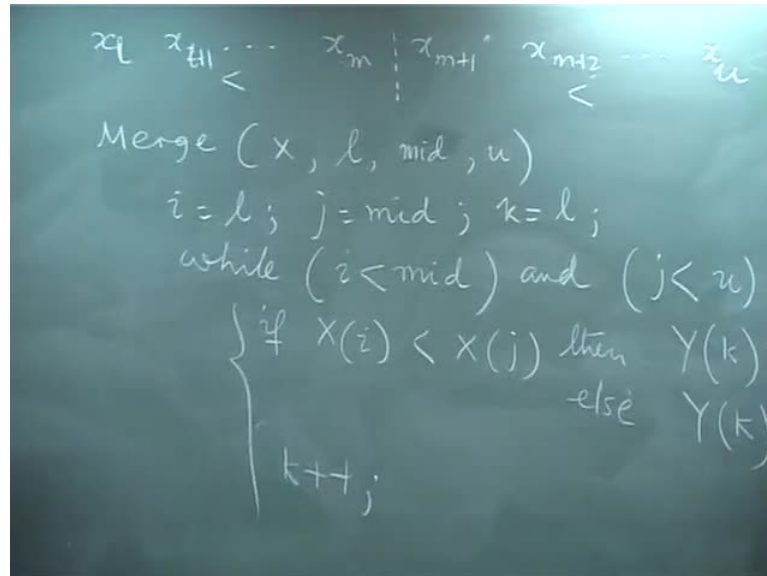 x_l x_{l+1} .... x_m ¦ x_{m+1} x_{m+2} .... x_u
< <
Merge (X, l, mid, u)
i = l ; j = mid ; k = l ;
while (i < mid) and (j < u)
{ if X(i) < X(j) then Y(k)
else Y(k)
k++ ;